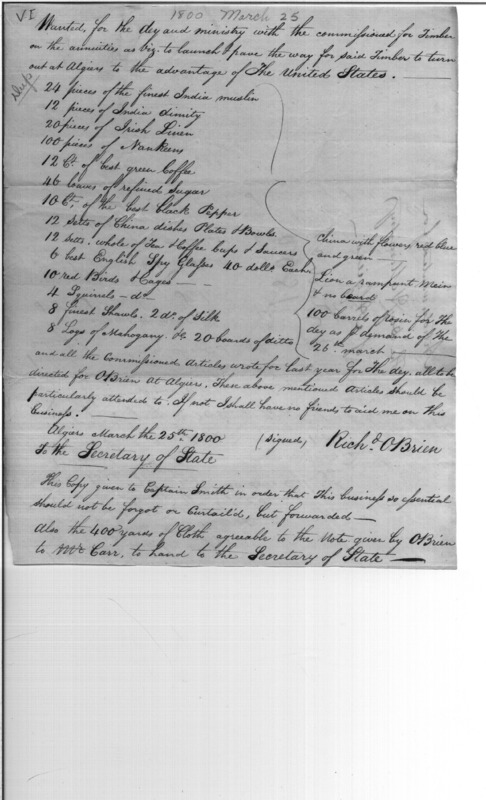 VI
1800 March 25
Dup
Wanted, for the dey and ministry with the commissioned for Timber
on the annuities as viz. to launch & pave the way for said Timber to turn
out at Algiers to the advantage of The United States. —
24 pieces of the finest India muslin
12 pieces of India dimity
20 pieces of Irish Linen
100 pieces of Nankeens
12 Ct. of best green Coffee
46 loaves of refined Sugar
10 Ct. of the best black Pepper
12 Setts of China dishes Plates & Bowls
12 Setts. whole of Tea & Coffee Cups & Saucers
6 best English Spy Glasses 40 dolls Each
10 red Birds & Cages — —
4 Squirrels — do —
8 finest Shawls. 2 do. of Silk
8 Logs of Mahogany. & 20 boards of ditto
China with flowers red blue
and green —
Lion a rampant Mains
& no beard
100 barrels of rosin for The
dey as pr demand of The
26th march
and all the Commissioned Articles wrote for last year for The dey, all to be
directed for OBrien at Algiers. These above mentioned Articles should be
particularly attended to. If not I shall have no friends to aid me on this
business. —
Algiers March the 25th 1800
(Signed) Richd. OBrien
To the Secretary of State
This Copy given to Captain Smith in order that This business so essential
should not be forgot or Curtailed, but forwarded —
Also the 400 yards of Cloth agreeable to the Note given by OBrien
to Mr Carr, to hand to the Secretary of State —